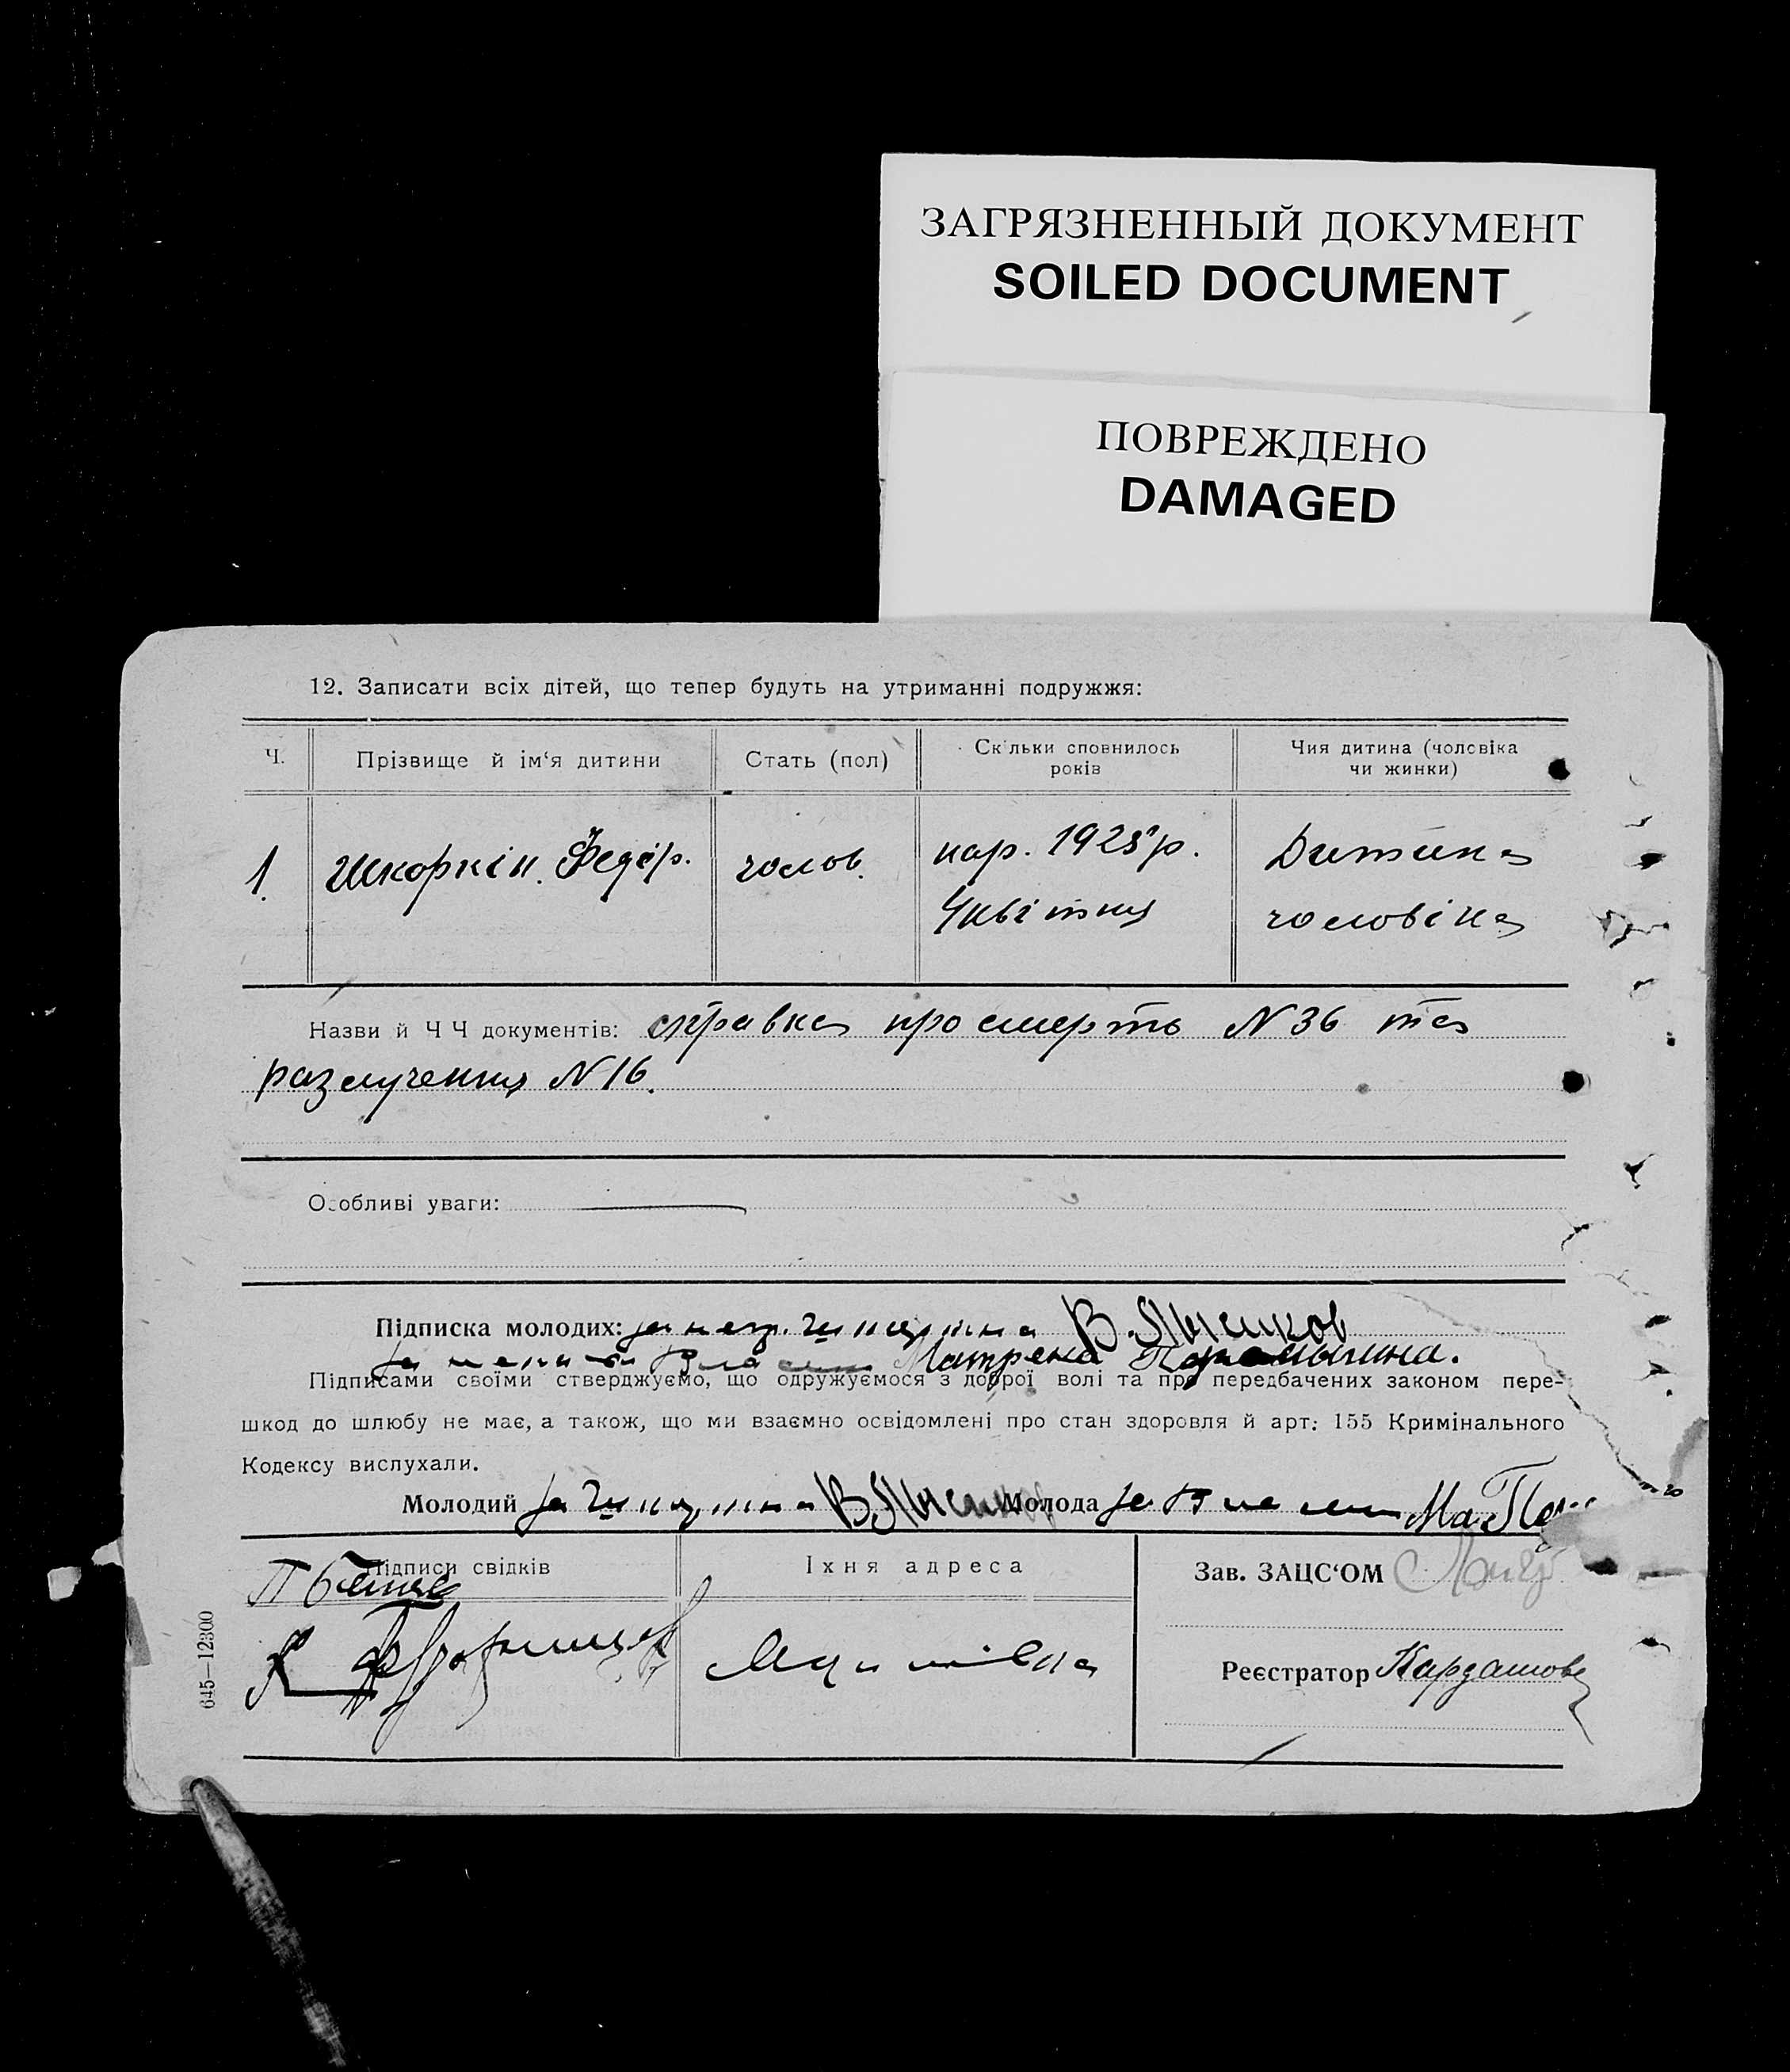 ЗАГРЯЗНЕННЫЙ ДОКУМЕНТ
SOILED DOCUMENT
ПОВРЕЖДЕНО
DAMAGED
12. Записати всіх дітей, що тепер будуть на утриманні подружжя:
Ч. Прізвище й ім‘я дитини Стать (пол) Скільки сповнилось років Чия дитина (чоловіка чи жинки)
1. Шкоркін Федір. чолов. нар. 1925 р. Дитина
4 квітня чоловіка
Назви й Ч Ч документів: справка про смерть N 36 та
разлучення N 16.
Особливі уваги:
Підписка молодих: за В.
за Матрена
Підписами своїми стверджуємо, що одружуємося з доброї волі та про передбачених законом пере-
шкод до шлюбу не має, а також, що ми взаємно освідомлені про стан здоровля й арт: 155 Кримінального
Кодексу вислухали.
Молодий за В. Молода за
Підписи свідків Їхня адреса Зав. ЗАЦС‘ОМ
Реєстратор Кардашова
645—12300